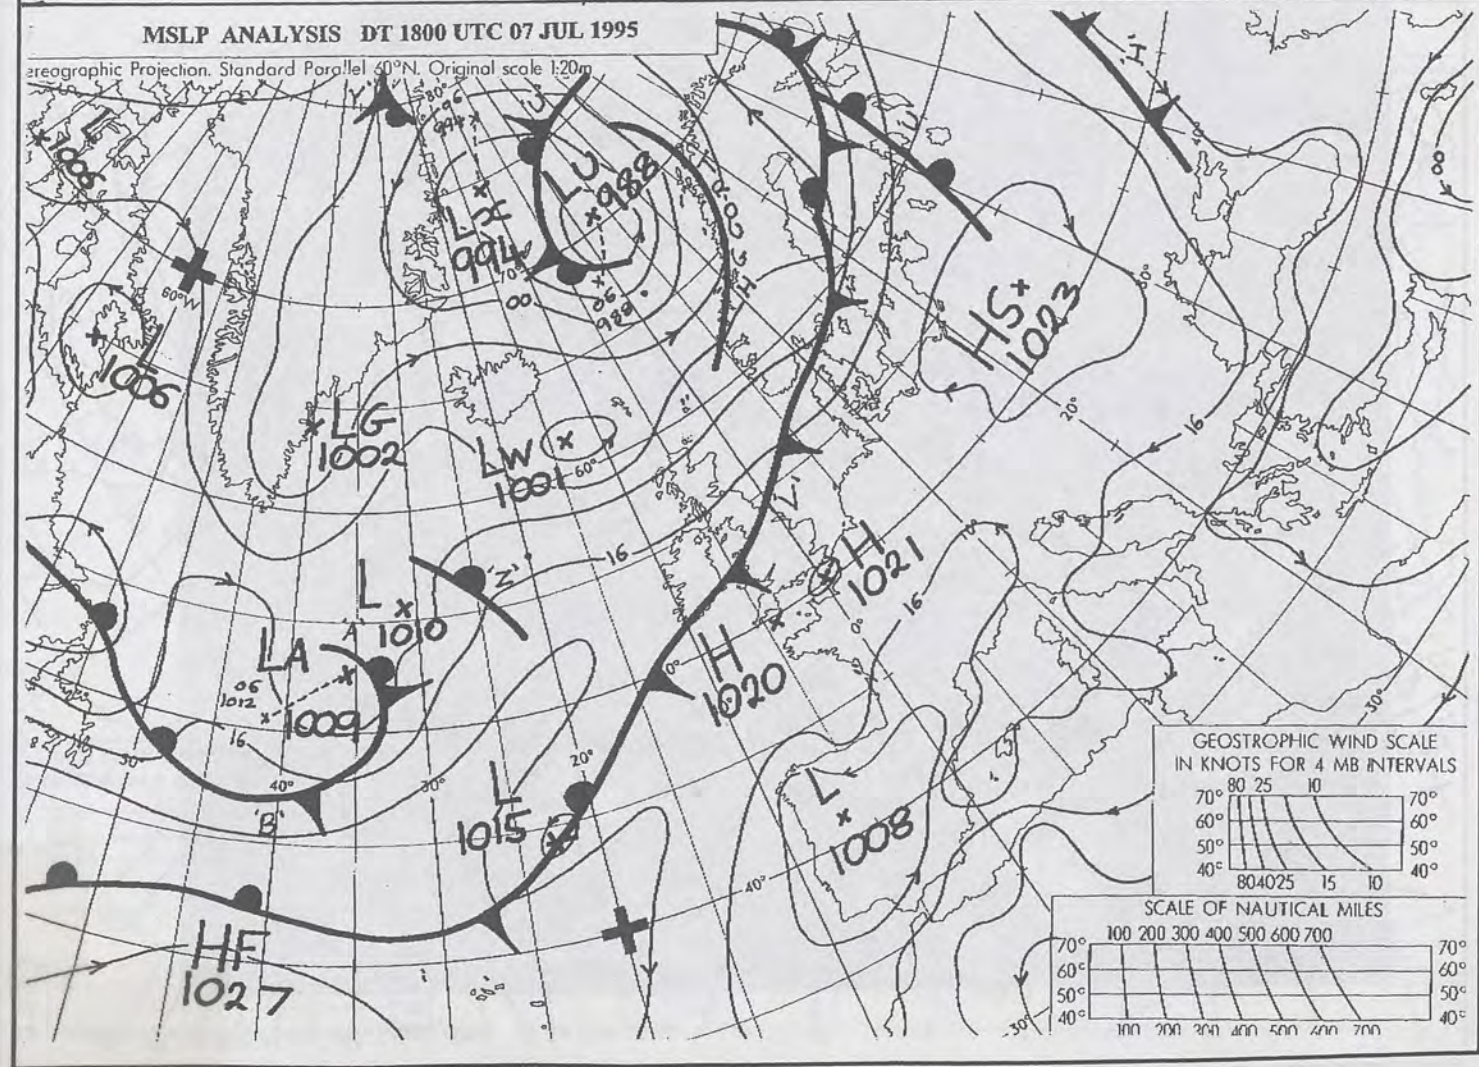 MSLP ANALYSIS DT 1800 UTC 07 JUL 1995
ereographic Projection. Standard Parallel 60°N. Original scale 1:20m
L
1006
L
1006
60°W
'Y'
80°
06
994
'U'
LX
994
70°
00
LU
988
06
989
'H'
8
HS
1023
20°
16
LG
1002
LW
1001
60°
16
'Z'
'Z'
H
1021
10°
0°
16
L
1010
'A'
LA
06
1012
1009
16
H
1020
0°
50°
40°
30°
20°
'B'
L
1015
L
1008
40°
30°
30°
HF
1027
GEOSTROPHIC WIND SCALE
IN KNOTS FOR 4 MB INTERVALS
80 25 10
70° 70°
60° 60°
50° 50°
40° 40°
80 40 25 15 10
SCALE OF NAUTICAL MILES
100 200 300 400 500 600 700
70° 70°
60° 60°
50° 50°
40° 40°
100 200 300 400 500 600 700